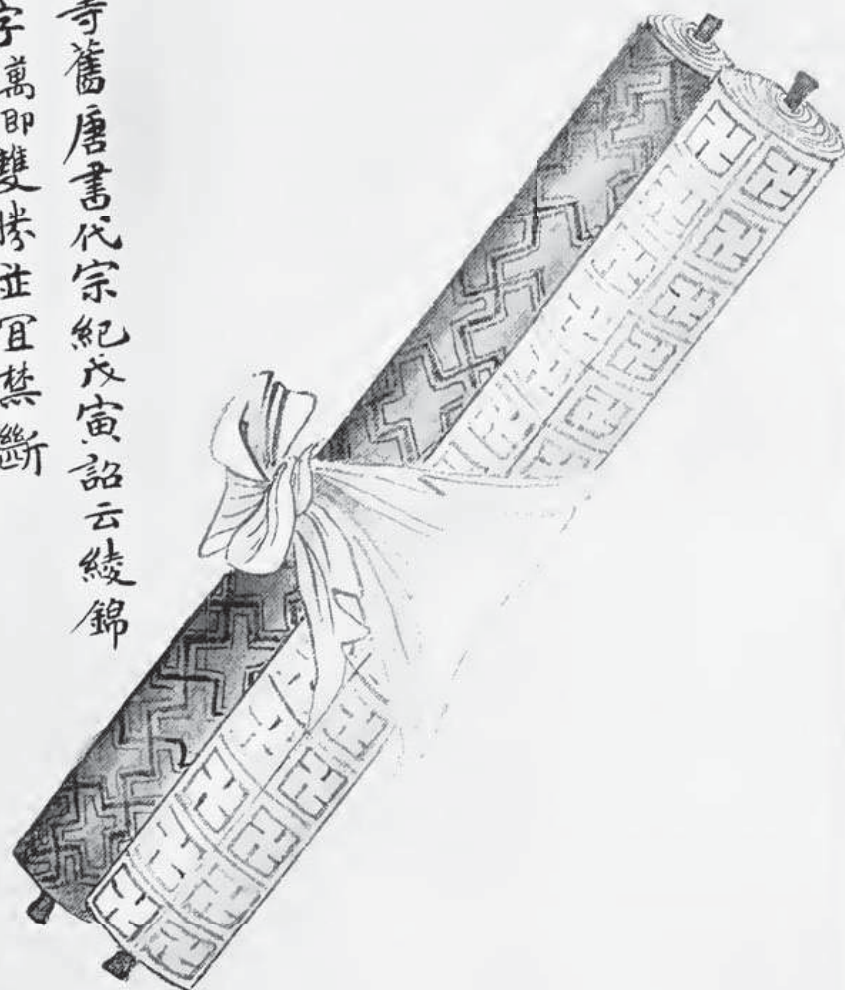 寺舊唐書代宗紀戊寅詔云綾錦
字萬即雙勝並冝禁斷